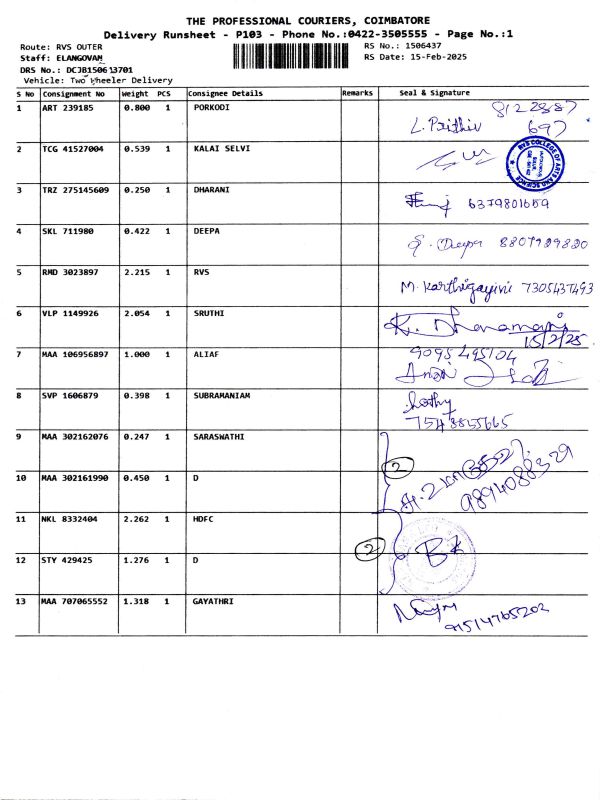 THE PROFESSIONAL COURIERS, COIMBATORE
Delivery Runsheet - P103 - Phone No.:0422-3505555 - Page No.:1
Route: RVS OUTER RS No.: 1506437
Staff: ELANGOVAN RS Date: 15-Feb-2025
DRS No.: DCJB150613701
Vehicle: Two Wheeler Delivery
S No Consignment No Weight PCS Consignee Details Remarks Seal & Signature
1 ART 239185 0.800 1 PORKODI 8122887
L. Prithiv 697
2 TCG 41527004 0.539 1 KALAI SELVI
RVS COLLEGE OF ARTS AND SCIENCE
3 TRZ 275145609 0.250 1 DHARANI 6379801659
4 SKL 711980 0.422 1 DEEPA Deepa 8807929820
5 RMD 3023897 2.215 1 RVS M. Karthigayini 7305437493
6 VLP 1149926 2.054 1 SRUTHI K.
15/2/25
7 MAA 106956897 1.000 1 ALIAF 9095495104
8 SVP 1606879 0.398 1 SUBRAMANIAM
7548855665
9 MAA 302162076 0.247 1 SARASWATHI
2
10 MAA 302161990 0.450 1 D 9894088329
11 NKL 8332404 2.262 1 HDFC
2
12 STY 429425 1.276 1 D
13 MAA 707065552 1.318 1 GAYATHRI
91514765202